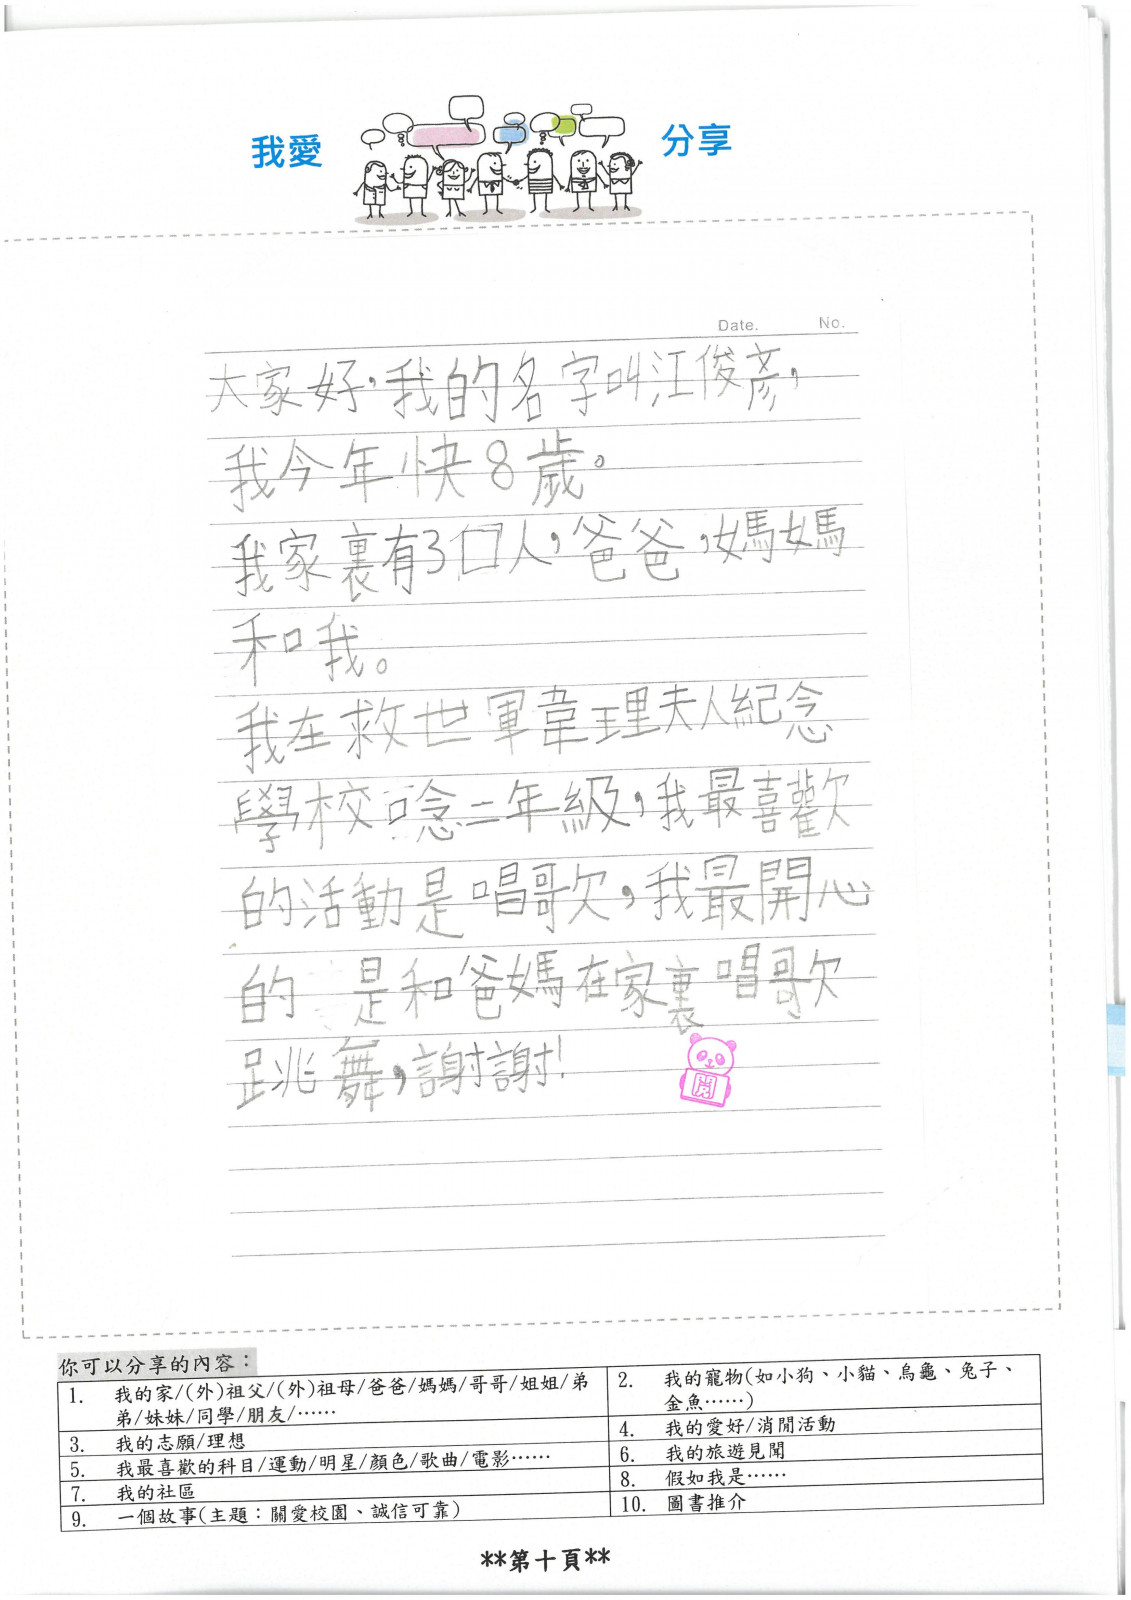 我愛 分享
Date. No.
大家好，我的名字叫江俊彥，
我今年快8歲。
我家裏有3口人，爸爸，媽媽
和我。
我在救世軍韋理夫人紀念
學校唸二年級，我最喜歡
的活動是唱歌欠，我最開心
的 是和爸媽在家裏唱歌欠
跳舞，謝謝!
開
你可以分享的內容：
1. 我的家/(外)祖父/(外)祖母/爸爸/媽媽/哥哥/姐姐/弟
弟/妹妹/同學/朋友/……
2. 我的寵物(如小狗、小貓、烏龜、兔子、
金魚……)
3. 我的志願/理想
4. 我的愛好/消閒活動
5. 我最喜歡的科目/運動/明星/顏色/歌曲/電影……
6. 我的旅遊見聞
7. 我的社區
8. 假如我是……
9. 一個故事(主題：關愛校園、誠信可靠)
10. 圖書推介
**第十頁**